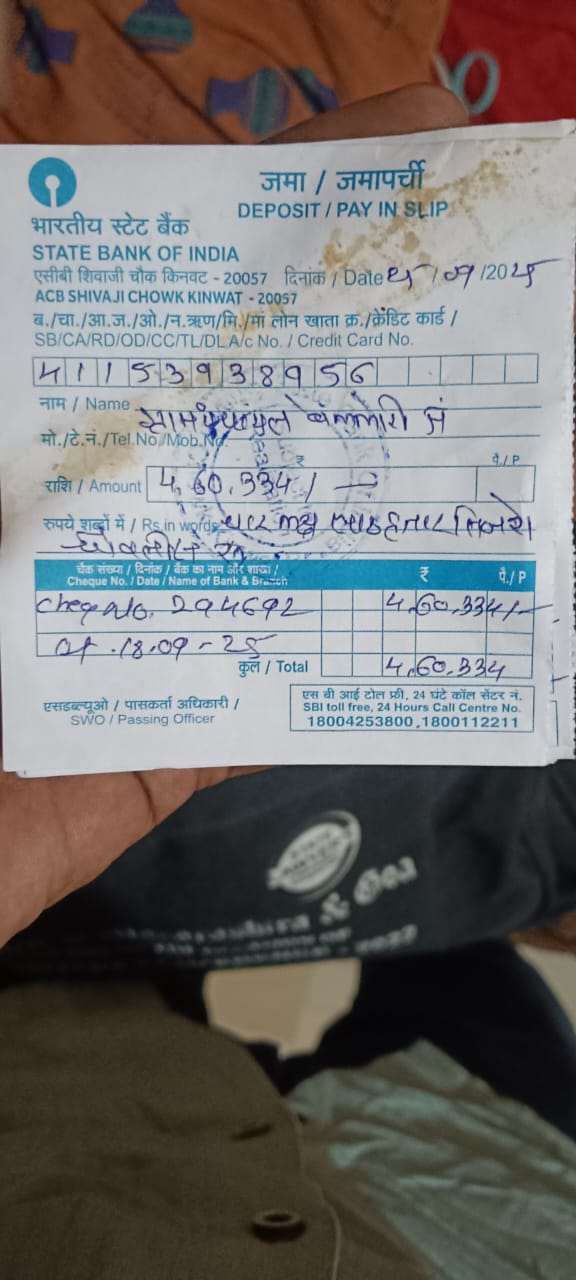 जमा / जमापर्ची
DEPOSIT / PAY IN SLIP
भारतीय स्टेट बैंक
STATE BANK OF INDIA
एसीबी शिवाजी चौक किनवट - 20057 दिनांक / Date /09/2025
ACB SHIVAJI CHOWK KINWAT - 20057
ब./चा./आ.ज./ओ./न.ऋण/मि./मां लोन खाता क्र./क्रेडिट कार्ड /
SB/CA/RD/OD/CC/TL/DLA/c No. / Credit Card No.
41153938956
नाम / Name
मो./टे.नं./Tel.No./Mob.No.
₹ पै./P
राशि / Amount 4,60,334/-
रुपये शब्दों में / Rs.in words चार लक्ष साठ हजार तिनशे
चौवतीस रु
चैक संख्या / दिनांक / बैंक का नाम और शाखा /
Cheque No. / Date / Name of Bank & Branch ₹ पै./P
CheqNo. 294692 4,60,334/-
dt. 18.09-25
कुल / Total 4,60,334
एसडब्ल्यूओ / पासकर्ता अधिकारी /
SWO / Passing Officer
एस बी आई टोल फ्री, 24 घंटे कॉल सेंटर नं.
SBI toll free, 24 Hours Call Centre No.
18004253800,1800112211